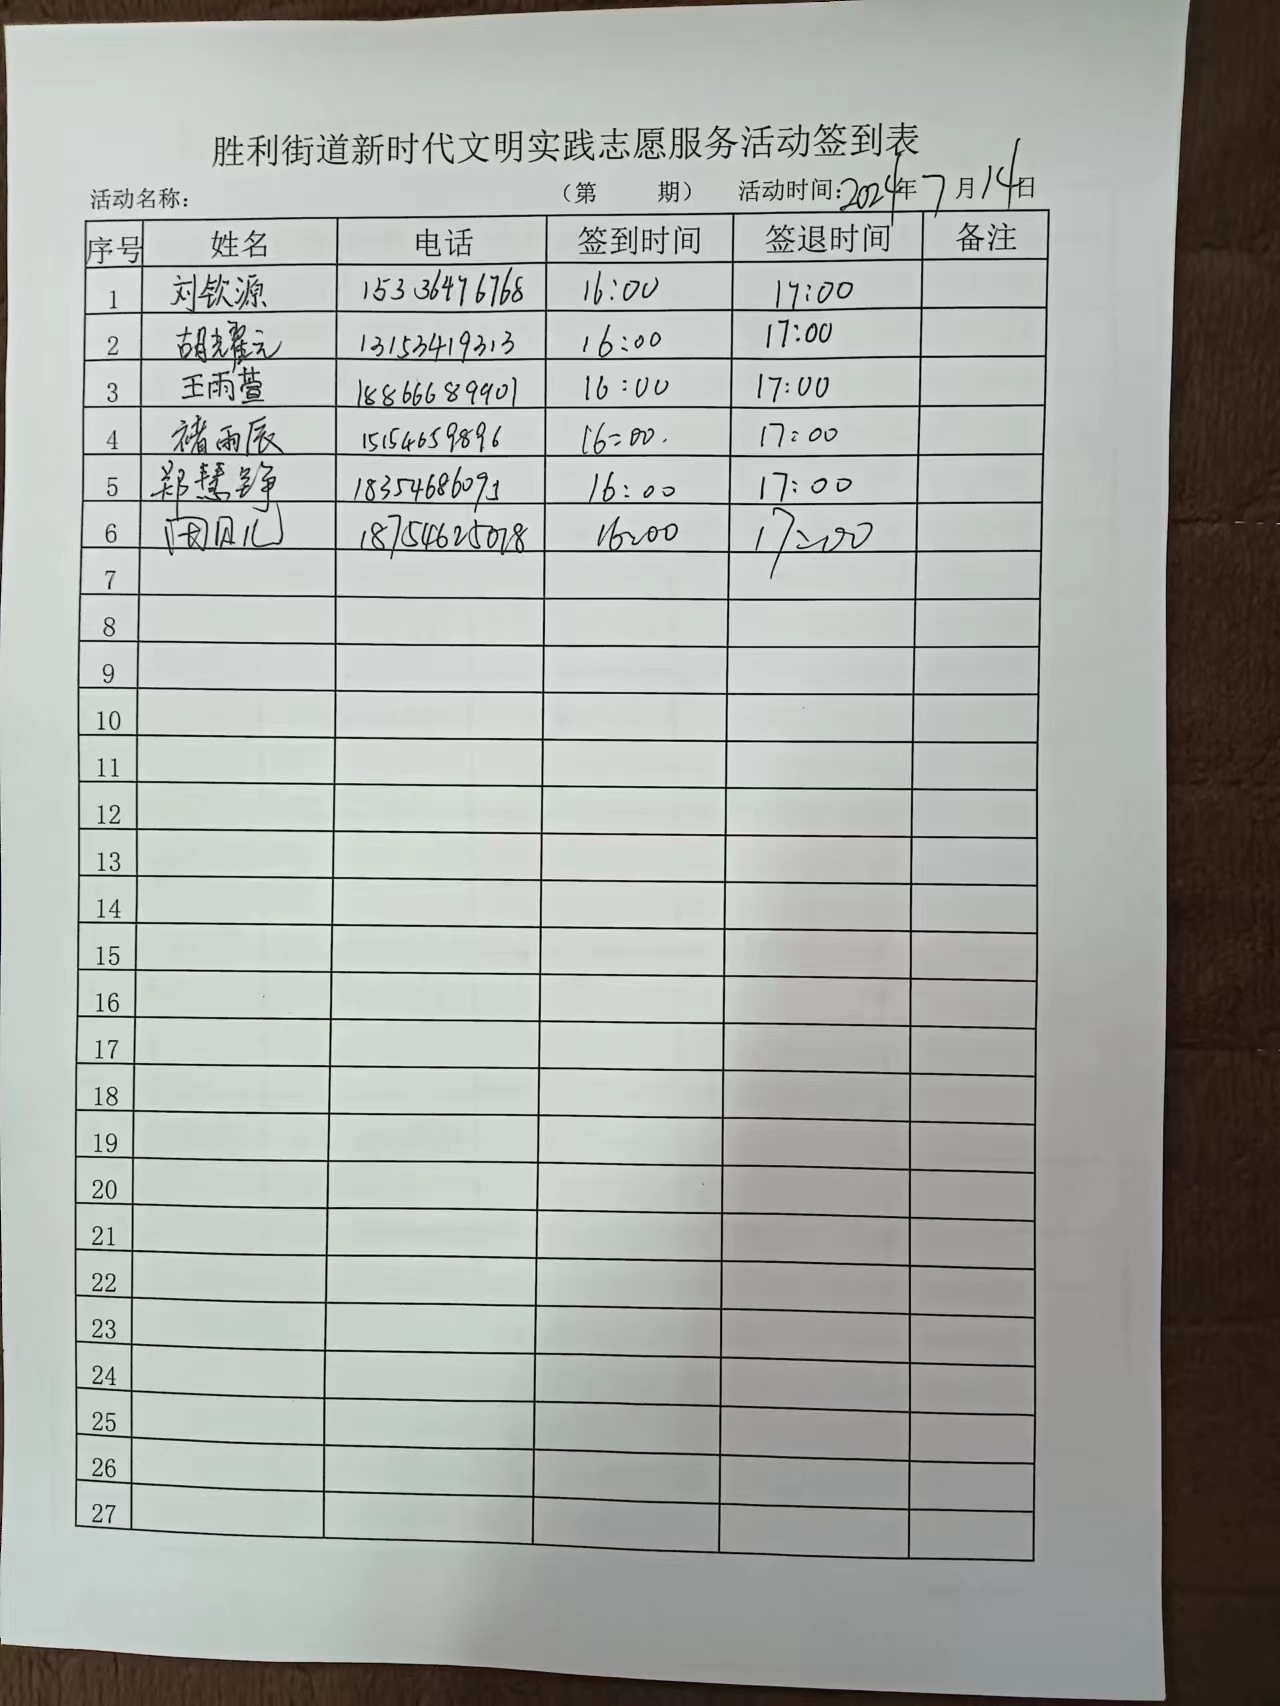 胜利街道新时代文明实践志愿服务活动签到表
活动名称: （第 期） 活动时间:2024年7月14日
序号 姓名 电话 签到时间 签退时间 备注
1 刘钦源 15336476768 16:00 17:00
2 胡耀元 13153419313 16:00 17:00
3 王雨萱 18866689901 16:00 17:00
4 褚雨辰 15154659896 16:00. 17:00
5 郑慧铮 18354686091 16:00 17:00
6 18754625028 16:00 17:00
7
8
9
10
11
12
13
14
15
16
17
18
19
20
21
22
23
24
25
26
27